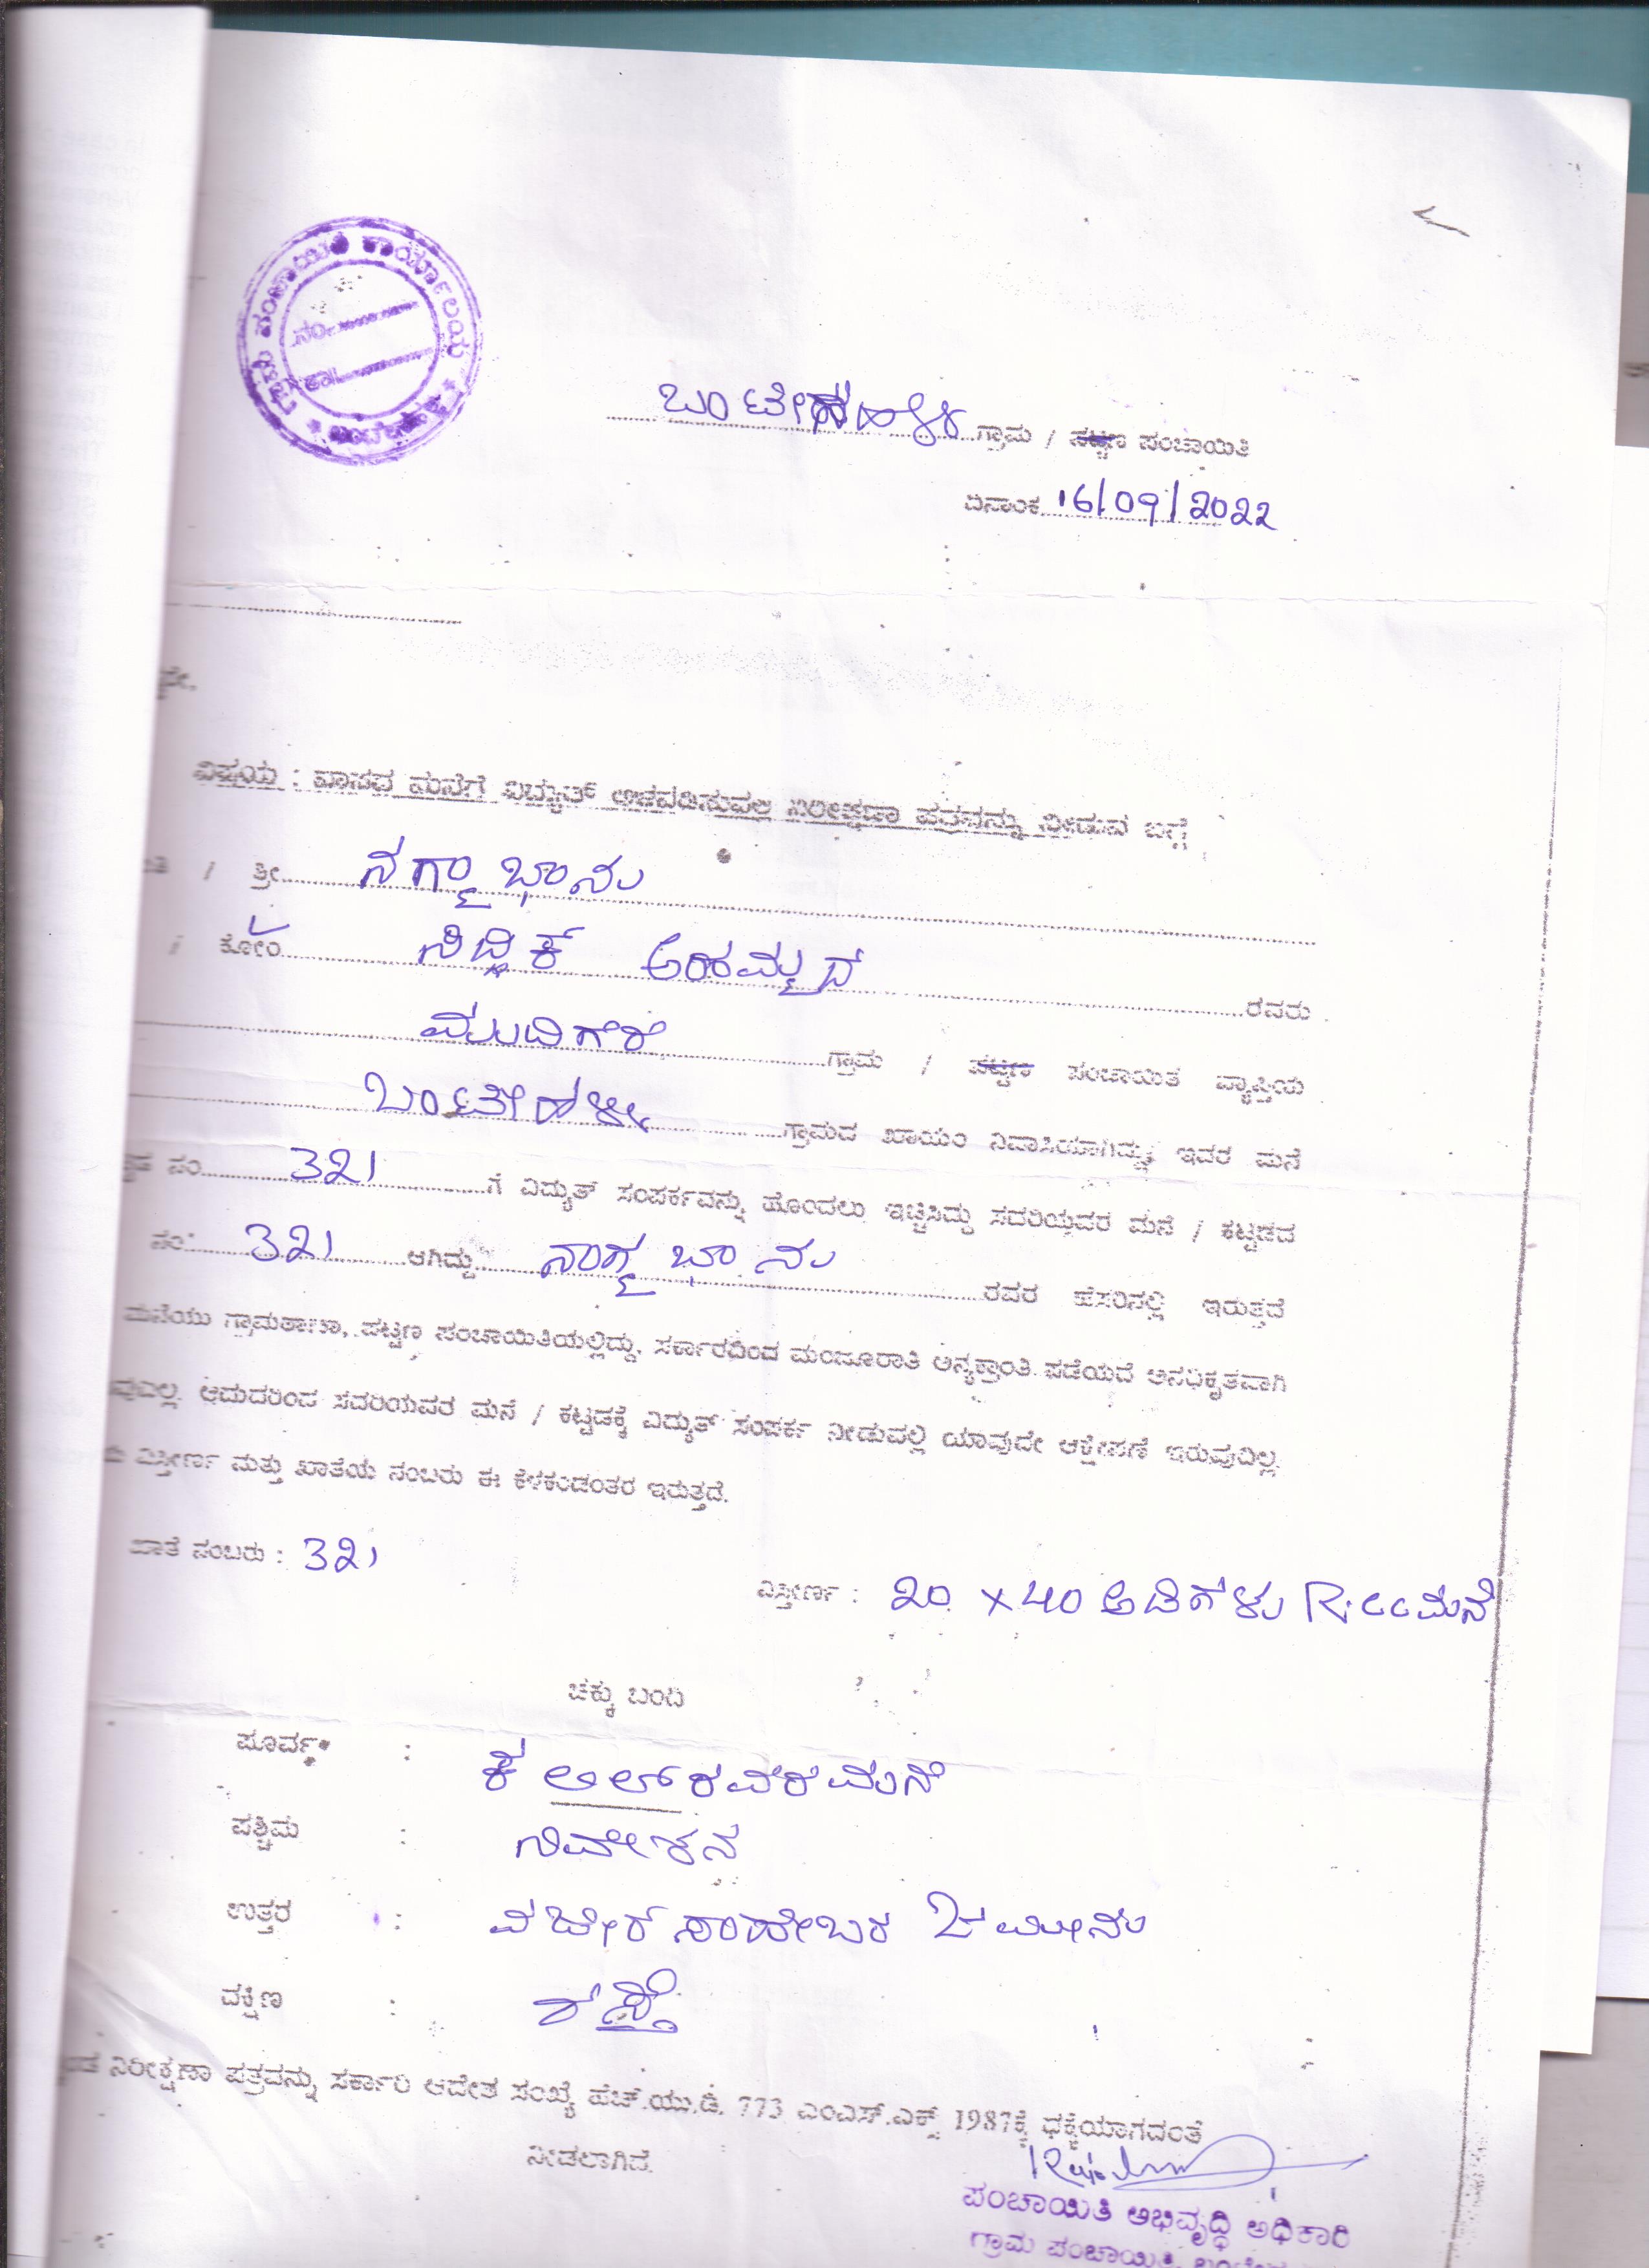 ಗ್ರಾಮ ಪಂಚಾಯಿತಿ ಕಾರ್ಯಾಲಯ
ನಂ
ತಾ
ಬಂಟೇನಹಳ್ಳಿ ಗ್ರಾಮ / ಪಟ್ಟಣ ಪಂಚಾಯಿತಿ
ದಿನಾಂಕ 16/09/2022
ವಿಷಯ : ವಾಸದ ಮನೆಗೆ ವಿದ್ಯುತ್ ಅಳವಡಿಸುವಲ್ಲಿ ನಿರೀಕ್ಷಣಾ ಪತ್ರವನ್ನು ನೀಡುವ ಬಗ್ಗೆ
/ ಶ್ರೀ ನಗ್ಮಾ ಭಾನು
/ ಕೋಂ ಸಿದ್ದಿಕ್ ಅಹಮ್ಮದ್ ರವರು
ಮುದಿಗೆರೆ ಗ್ರಾಮ / ಪಟ್ಟಣ ಪಂಚಾಯಿತ ವ್ಯಾಪ್ತಿಯ
ಬಂಟೇನಹಳ್ಳಿ ಗ್ರಾಮದ ಖಾಯಂ ನಿವಾಸಿಯಾಗಿದ್ದು, ಇವರ ಮನೆ
ನಂ 321 ಗೆ ವಿದ್ಯುತ್ ಸಂಪರ್ಕವನ್ನು ಹೊಂದಲು ಇಚ್ಚಿಸಿದ್ದು ಸದರಿಯವರ ಮನೆ / ಕಟ್ಟಡದ
ನಂ 321 ಆಗಿದ್ದು ನಗ್ಮ ಭಾನು ರವರ ಹೆಸರಿನಲ್ಲಿ ಇರುತ್ತದೆ
ಮನೆಯು ಗ್ರಾಮಠಾಣಾ, ಪಟ್ಟಣ ಪಂಚಾಯಿತಿಯಲ್ಲಿದ್ದು, ಸರ್ಕಾರದಿಂದ ಮಂಜೂರಾತಿ ಅನ್ಯಕ್ರಾಂತಿ ಪಡೆಯದೆ ಅನಧಿಕೃತವಾಗಿ
ವುದಿಲ್ಲ. ಆದುದರಿಂದ ಸದರಿಯವರ ಮನೆ / ಕಟ್ಟಡಕ್ಕೆ ವಿದ್ಯುತ್ ಸಂಪರ್ಕ ನೀಡುವಲ್ಲಿ ಯಾವುದೇ ಆಕ್ಷೇಪಣೆ ಇರುವುದಿಲ್ಲ.
ವಿಸ್ತೀರ್ಣ ಮತ್ತು ಖಾತೆಯ ನಂಬರು ಈ ಕೆಳಕಂಡಂತರ ಇರುತ್ತದೆ.
ಖಾತೆ ನಂಬರು : 321
ವಿಸ್ತೀರ್ಣ : 20 x 40 ಅಡಿಗಳು R.cc ಮನೆ
ಚಕ್ಕು ಬಂದಿ
ಪೂರ್ವ : ರವರ ಮನೆ
ಪಶ್ಚಿಮ : ನಿವೇಶನ
ಉತ್ತರ : ವಜೀರ್ ಸಾಹೇಬರ ಜಮೀನು
ದಕ್ಷಿಣ : ರಸ್ತೆ
ನಿರೀಕ್ಷಣಾ ಪತ್ರವನ್ನು ಸರ್ಕಾರಿ ಆದೇಶ ಸಂಖ್ಯೆ ಹೆಚ್.ಯು.ಡಿ. 773 ಎಂಎಸ್.ಎಕ್ಸ್ 1987ಕ್ಕೆ ಧಕ್ಕೆಯಾಗದಂತೆ
ನೀಡಲಾಗಿದೆ.
ಪಂಚಾಯಿತಿ ಅಭಿವೃದ್ಧಿ ಅಧಿಕಾರಿ
ಗ್ರಾಮ ಪಂಚಾಯಿತಿ